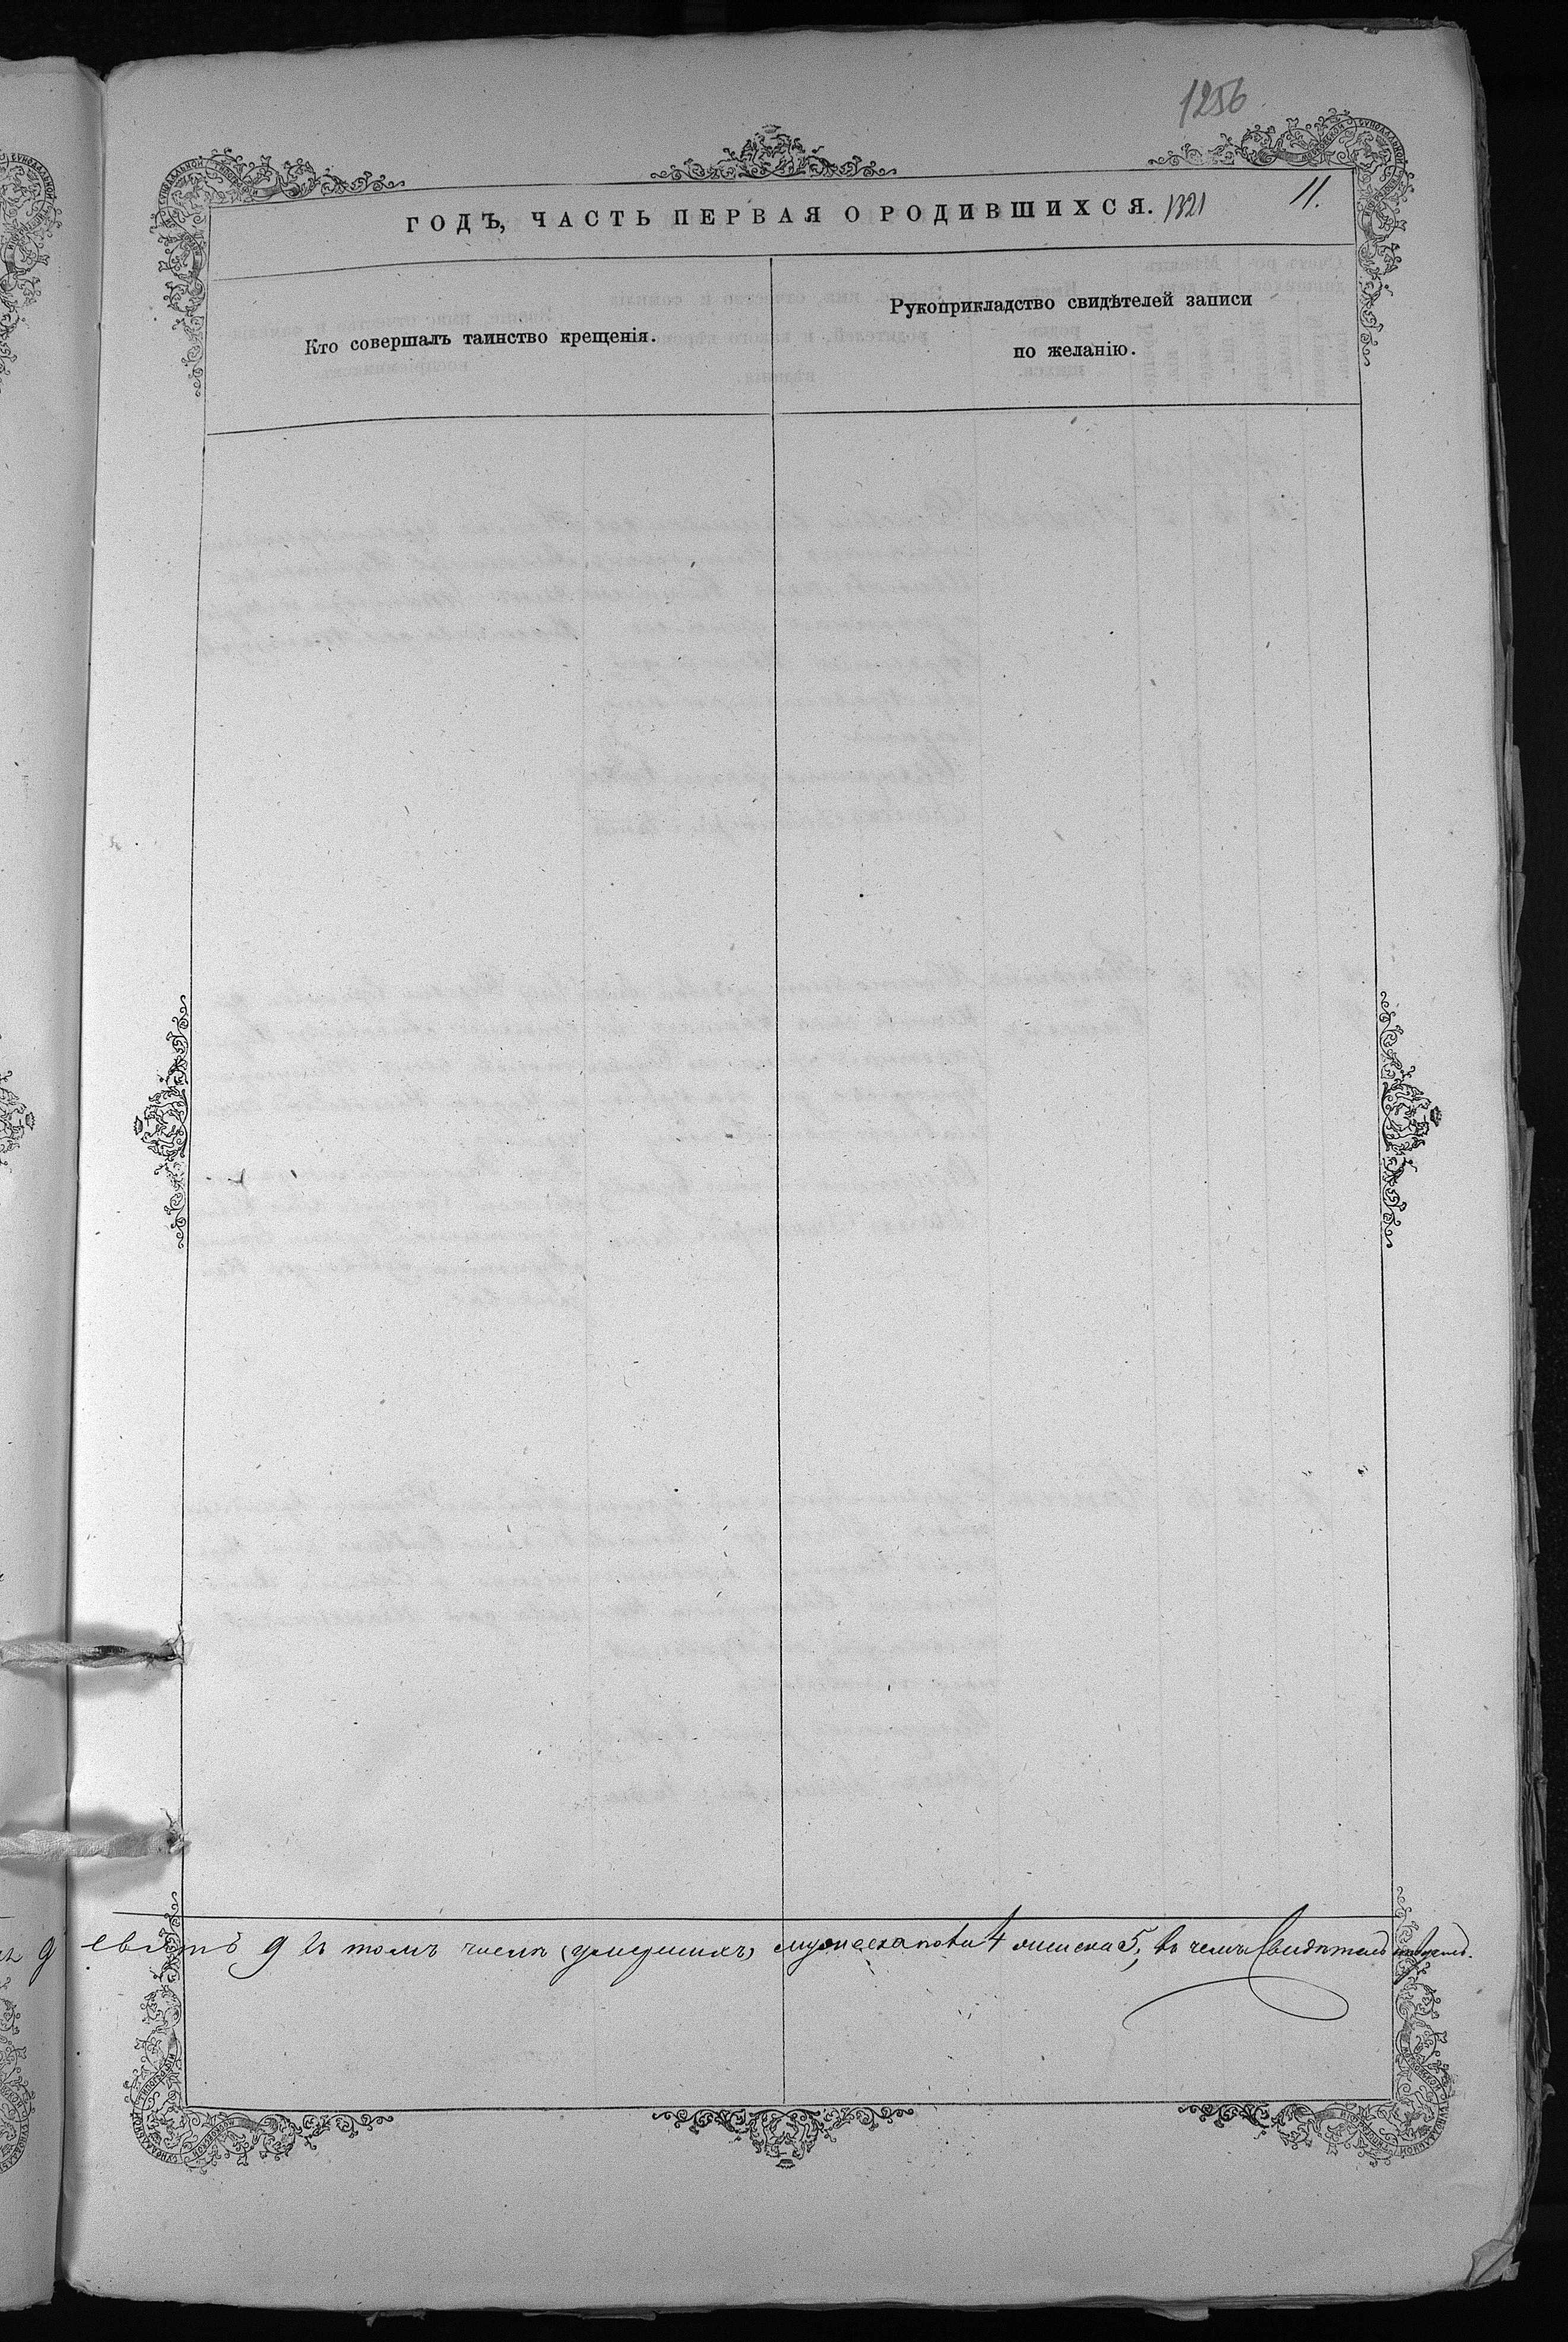 1256
ГОДЪ, ЧАСТЬ ПЕРВАЯ О РОДИВШИХСЯ. 1321 11.
Кто совершалъ таинство крещенія.
Рукоприкладство свидѣтелей записи
по желанію.
9 евять 9 въ томъ числѣ (умершихъ) мужескаго 4 женска 5, въ чемъ Свидѣтельствуемъ.